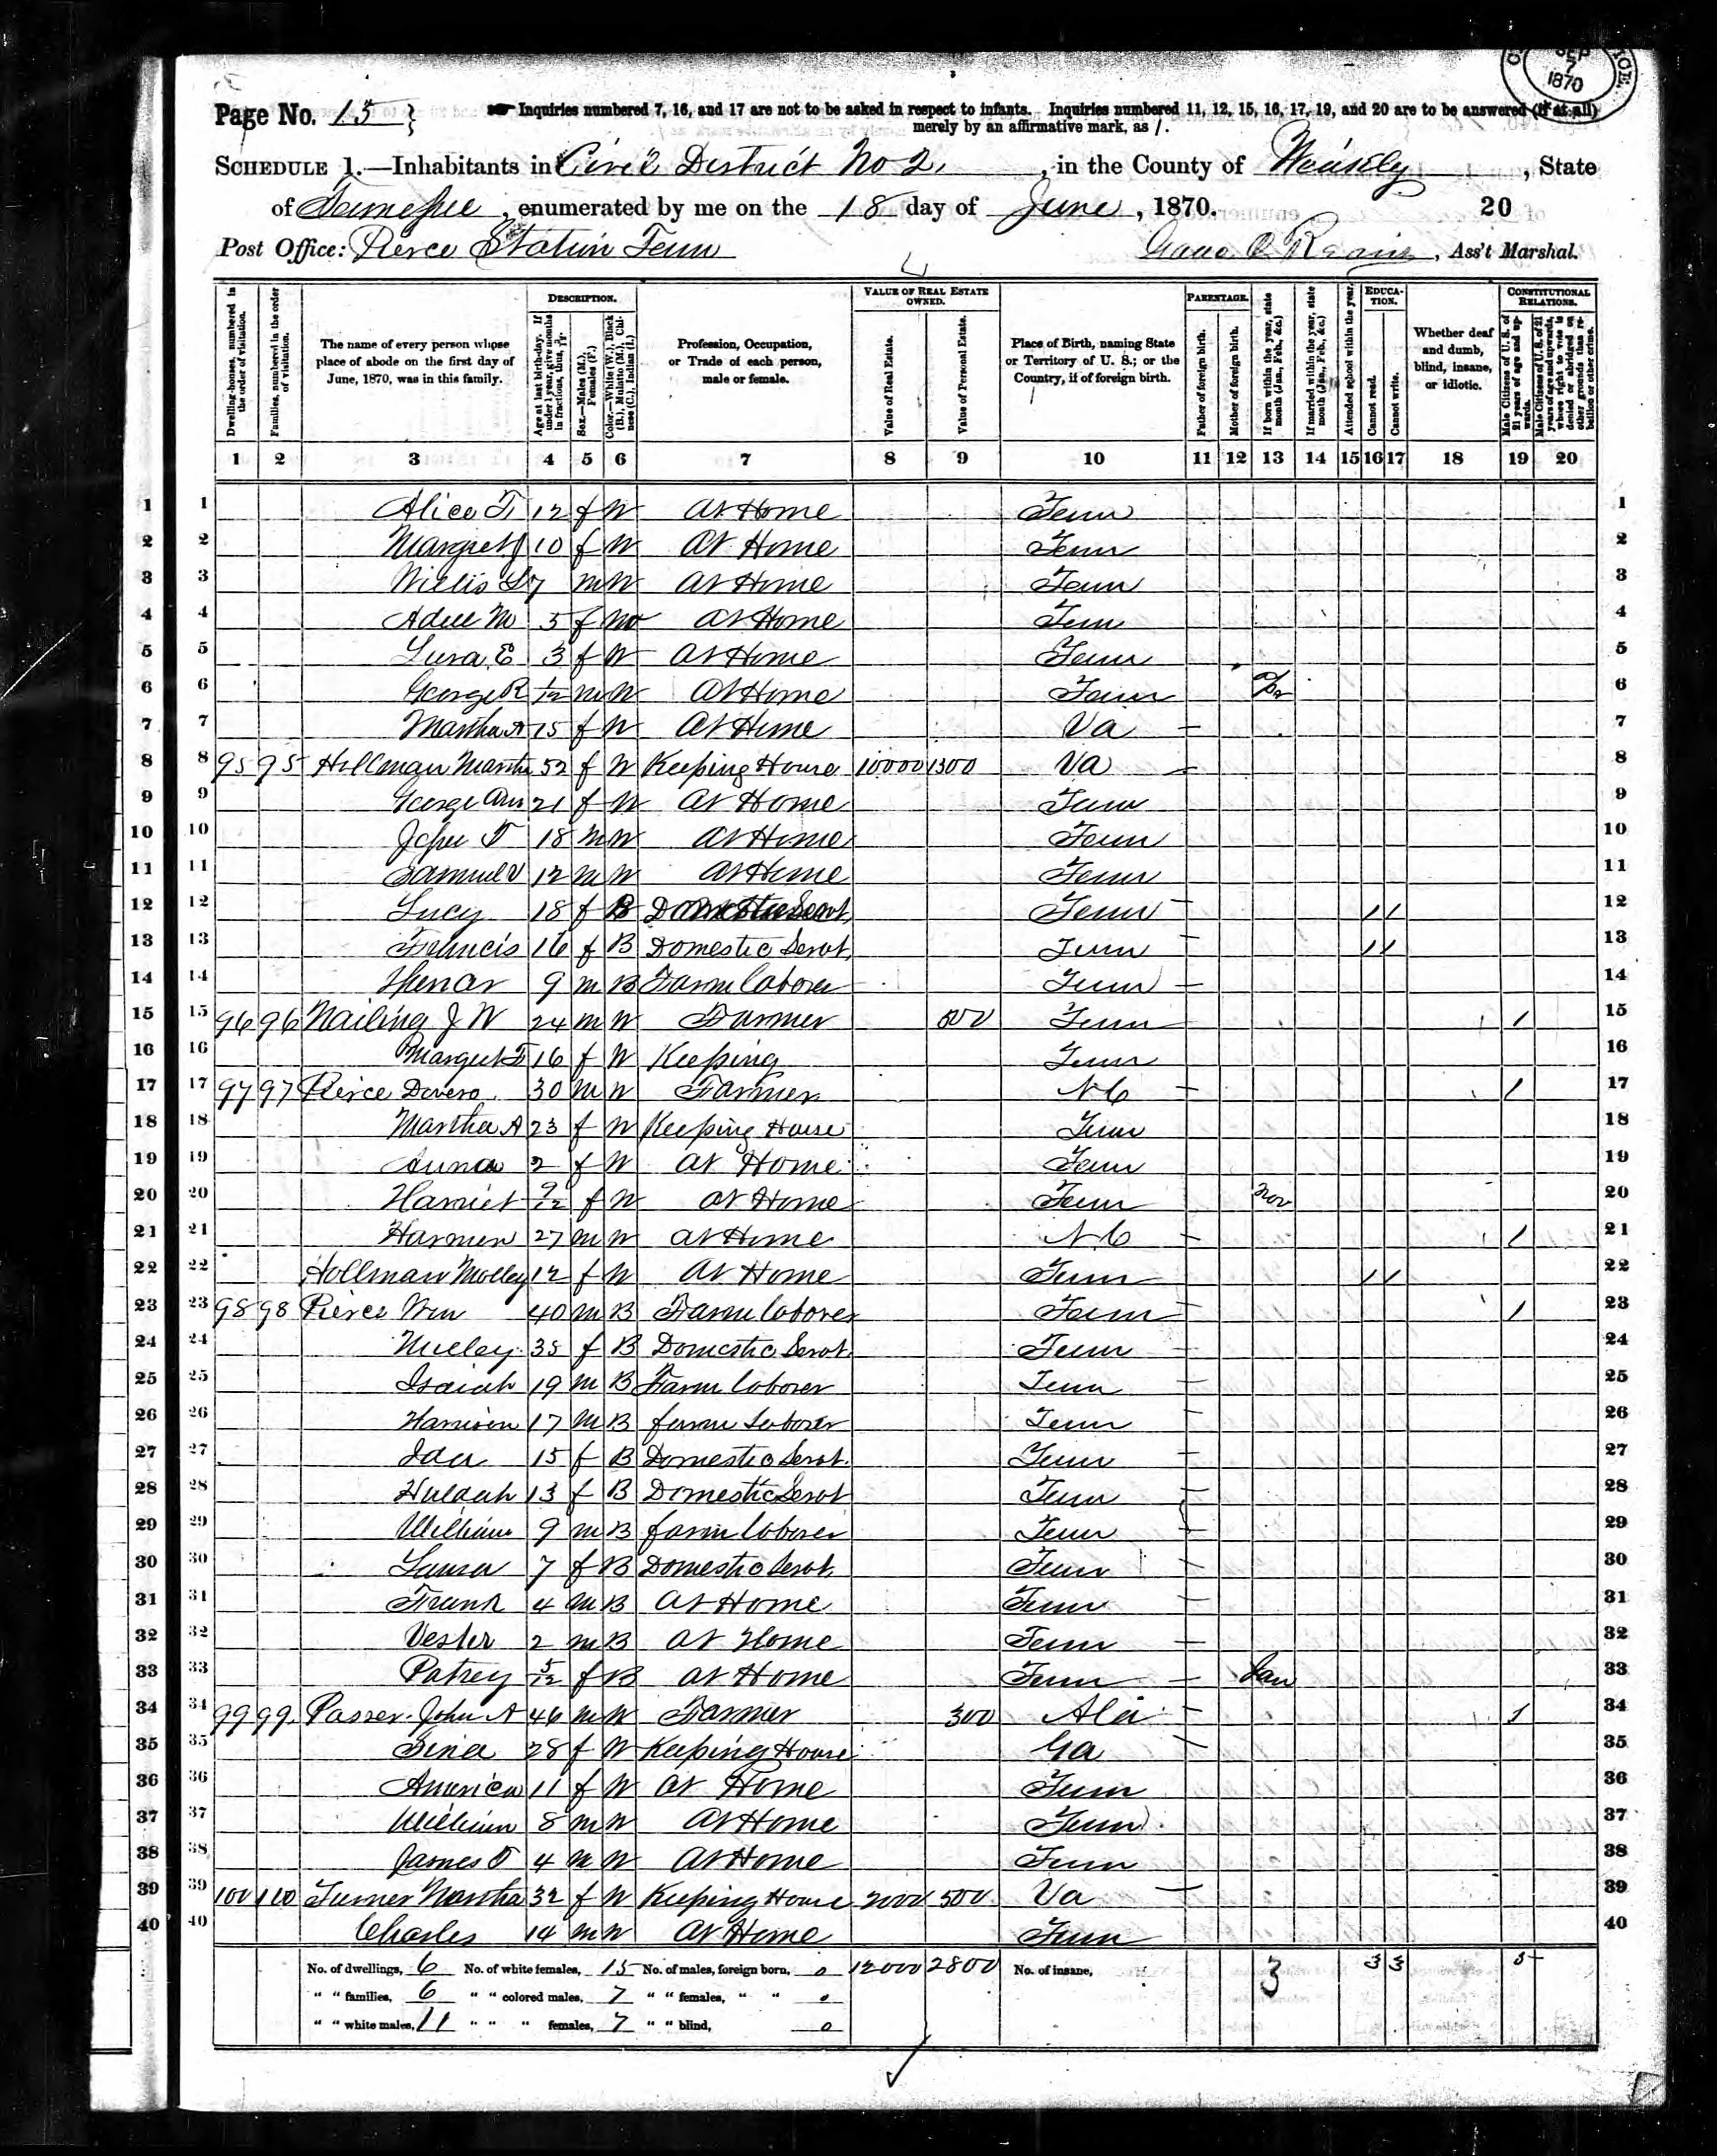 SEP 7 1870
Page No. 15
Inquiries numbered 7, 16, and 17 are not to be asked in respect to infants. Inquiries numbered 11, 12, 15, 16, 17, 19, and 20 are to be answered (if at all)
merely by an affirmative mark, as /.
SCHEDULE 1.—Inhabitants in Civil District No 2, in the County of Weakley, State
of Tennessee, enumerated by me on the 18 day of June, 1870. 20
Post Office: Pierce Station Tenn Ass't Marshal.
DESCRIPTION. VALUE OF REAL ESTATE OWNED. PARENTAGE. EDUCATION. CONSTITUTIONAL RELATIONS.
Dwelling-houses, numbered in the order of visitation.
Families, numbered in the order of visitation.
The name of every person whose place of abode on the first day of June, 1870, was in this family.
Age at last birth-day. If under 1 year, give months in fractions, thus, 3/12.
Sex.—Males (M.), Females (F.)
Color.—White (W.), Black (B.), Mulatto (M.), Chinese (C.), Indian (I.)
Profession, Occupation, or Trade of each person, male or female.
Value of Real Estate.
Value of Personal Estate.
Place of Birth, naming State or Territory of U. S.; or the Country, if of foreign birth.
Father of foreign birth.
Mother of foreign birth.
If born within the year, state month (Jan., Feb., &c.)
If married within the year, state month (Jan., Feb., &c.)
Attended school within the year.
Cannot read.
Cannot write.
Whether deaf and dumb, blind, insane, or idiotic.
Male Citizens of U. S. of 21 years of age and upwards.
Male Citizens of U. S. of 21 years of age and upwards, whose right to vote is denied or abridged on other grounds than rebellion or other crime.
1 2 3 4 5 6 7 8 9 10 11 12 13 14 15 16 17 18 19 20
1 Alice T 12 f W At Home Tenn 1
2 Margret J 10 f W At Home Tenn 2
3 Willis L 7 m W At Home Tenn 3
4 Adell M 5 f W At Home Tenn 4
5 Lura E 3 f W At Home Tenn 5
6 George R 1/12 m W At Home Tenn 6
7 Martha A 15 f W At Home Va 7
8 95 95 Hollman Martha 52 f W Keeping House 10000 1300 Va 8
9 George Ann 21 f W At Home Tenn 9
10 John T 18 m W At Home Tenn 10
11 Samuel V 12 m W At Home Tenn 11
12 Lucy 18 f B Domestic Servt Tenn / / 12
13 Francis 16 f B Domestic Servt Tenn / / 13
14 9 m B Farm laborer Tenn 14
15 96 96 Nailing J W 24 m W Farmer Tenn / 15
16 Margret T 16 f W Keeping Tenn 16
17 97 97 Pierce 30 m W Farmer N C / 17
18 Martha A 23 f W Keeping House Tenn 18
19 Anna 2 f W At Home Tenn 19
20 Harriet 9/12 f W At Home Tenn Nov 20
21 Harmen 27 m W At Home N C / 21
22 Hollman Molley 12 f W At Home Tenn / / 22
23 98 98 Pierce Wm 40 m B Farm laborer Tenn / 23
24 35 f B Domestic Servt Tenn 24
25 Isaiah 19 m B Farm laborer Tenn 25
26 Harrison 17 m B farm laborer Tenn 26
27 Ida 15 f B Domestic Servt Tenn 27
28 Huldah 13 f B Domestic Servt Tenn 28
29 William 9 m B farm laborer Tenn 29
30 Laura 7 f B Domestic Servt Tenn 30
31 Frank 4 m B At Home Tenn 31
32 Vester 2 m B At Home Tenn 32
33 Patsey 5/12 f B At Home Tenn Jan 33
34 99 99 Passer John A 46 m W Farmer 300 Ala / 34
35 Sina 28 f W Keeping House Ga 35
36 America 11 f W At Home Tenn 36
37 William 8 m W At Home Tenn 37
38 James T 4 m W At Home Tenn 38
39 100 100 Turner Martha 32 f W Keeping House 2000 500 Va 39
40 Charles 14 m W At Home Tenn 40
No. of dwellings, 6 No. of white females, 15 No. of males, foreign born, 0 12000 2800 No. of insane, 3 3 3 5
" " families, 6 " " colored males, 7 " " females, " " 0
" " white males, 11 " " " females, 7 " " blind, 0